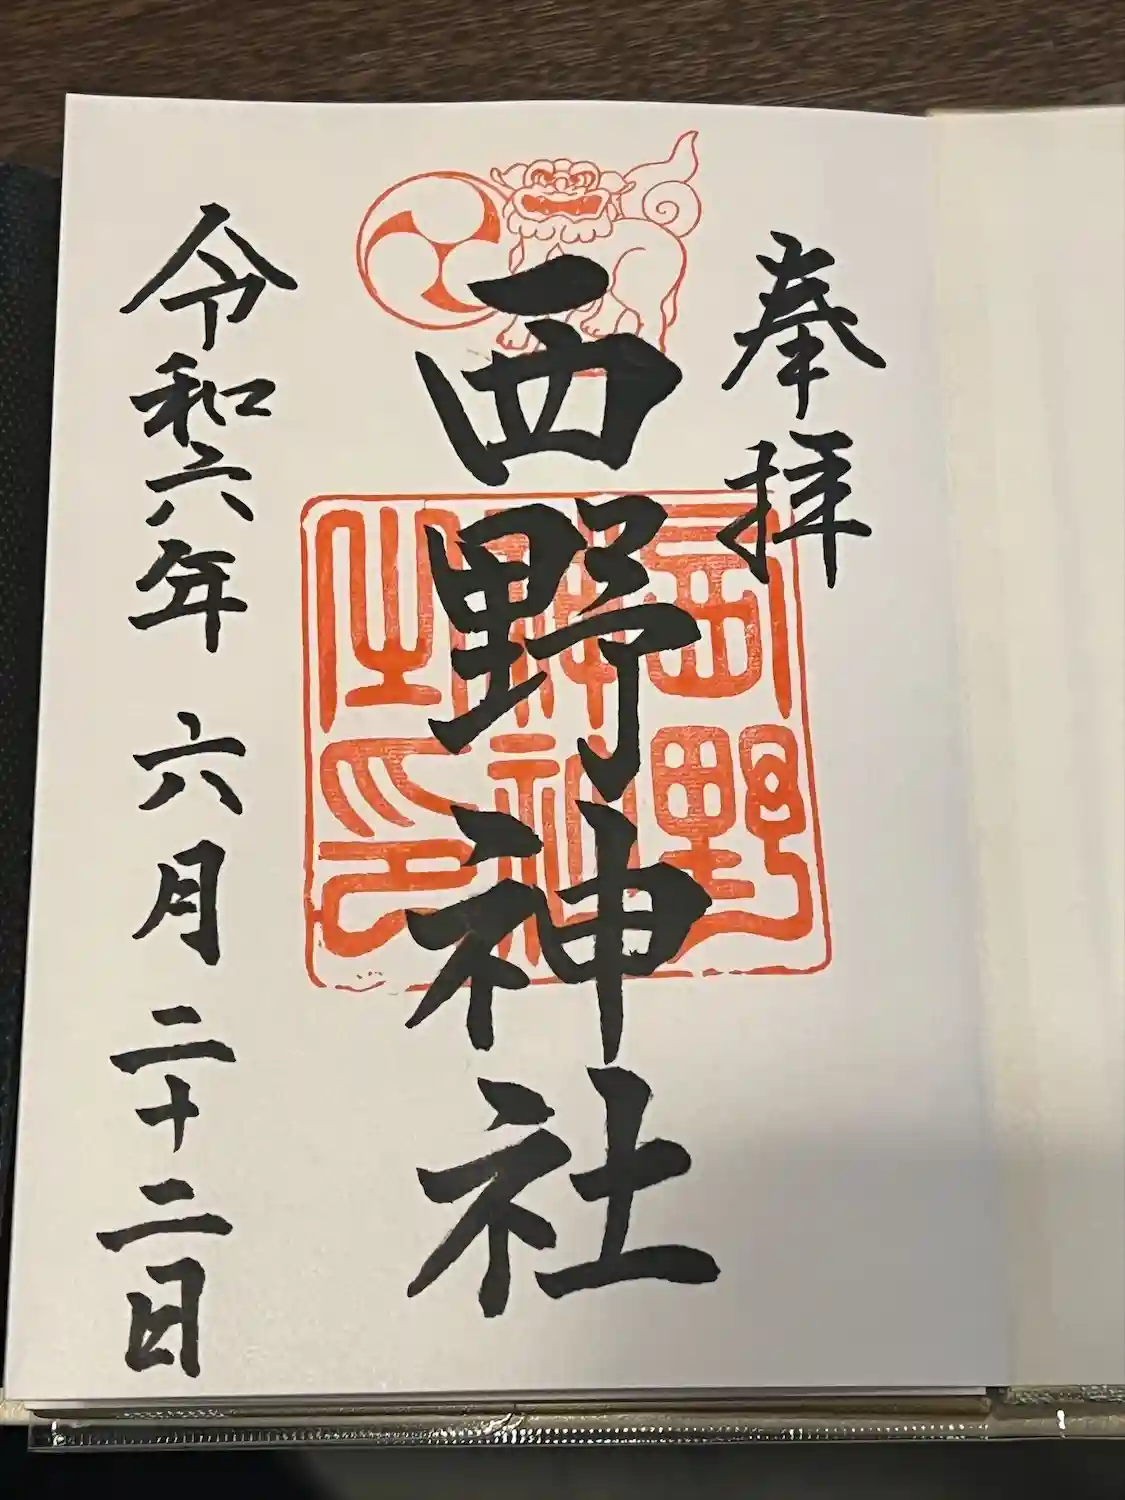 奉拝
西野神社
西野神社之印
令和六年六月二十二日